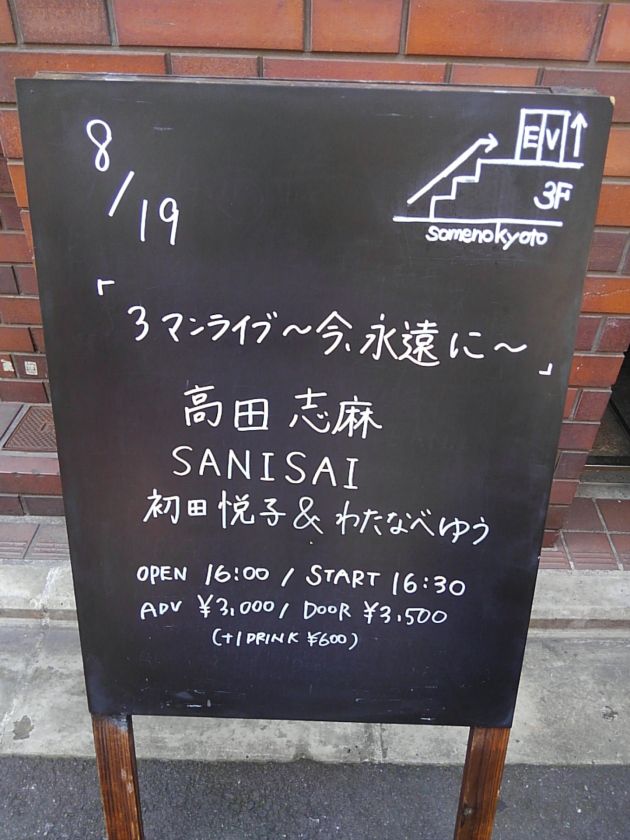 8/19
EV↑
3F
somenokyoto
「3マンライブ～今、永遠に～」
高田 志麻
SANISAI
初田 悦子 & わたなべゆう
OPEN 16:00 / START 16:30
ADV ¥3,000 / DOOR ¥3,500
(+1 DRINK ¥600)